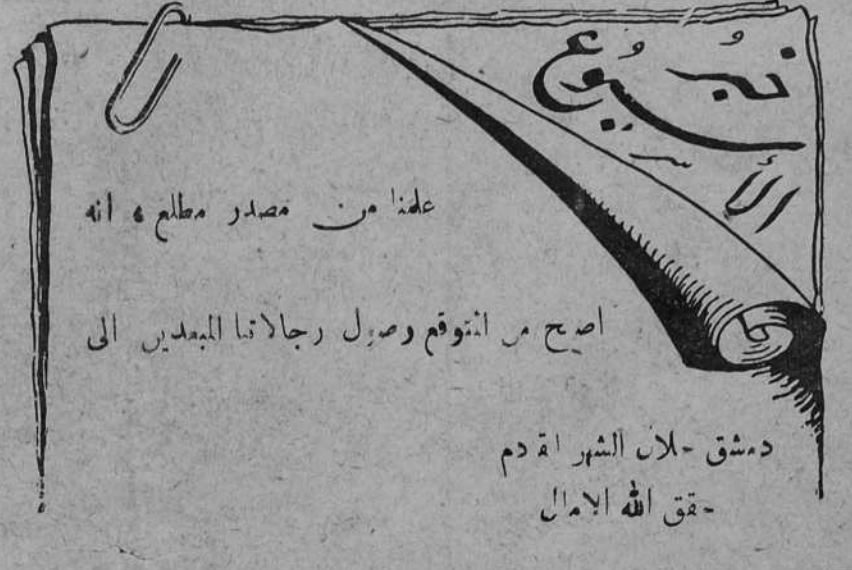 نبوع
الأسبوع
علمنا من مصدر مطلع ، انه
اصبح من المتوقع وصول رجالاتنا المبعدين الى
دمشق خلال الشهر القادم
حقق الله الامال